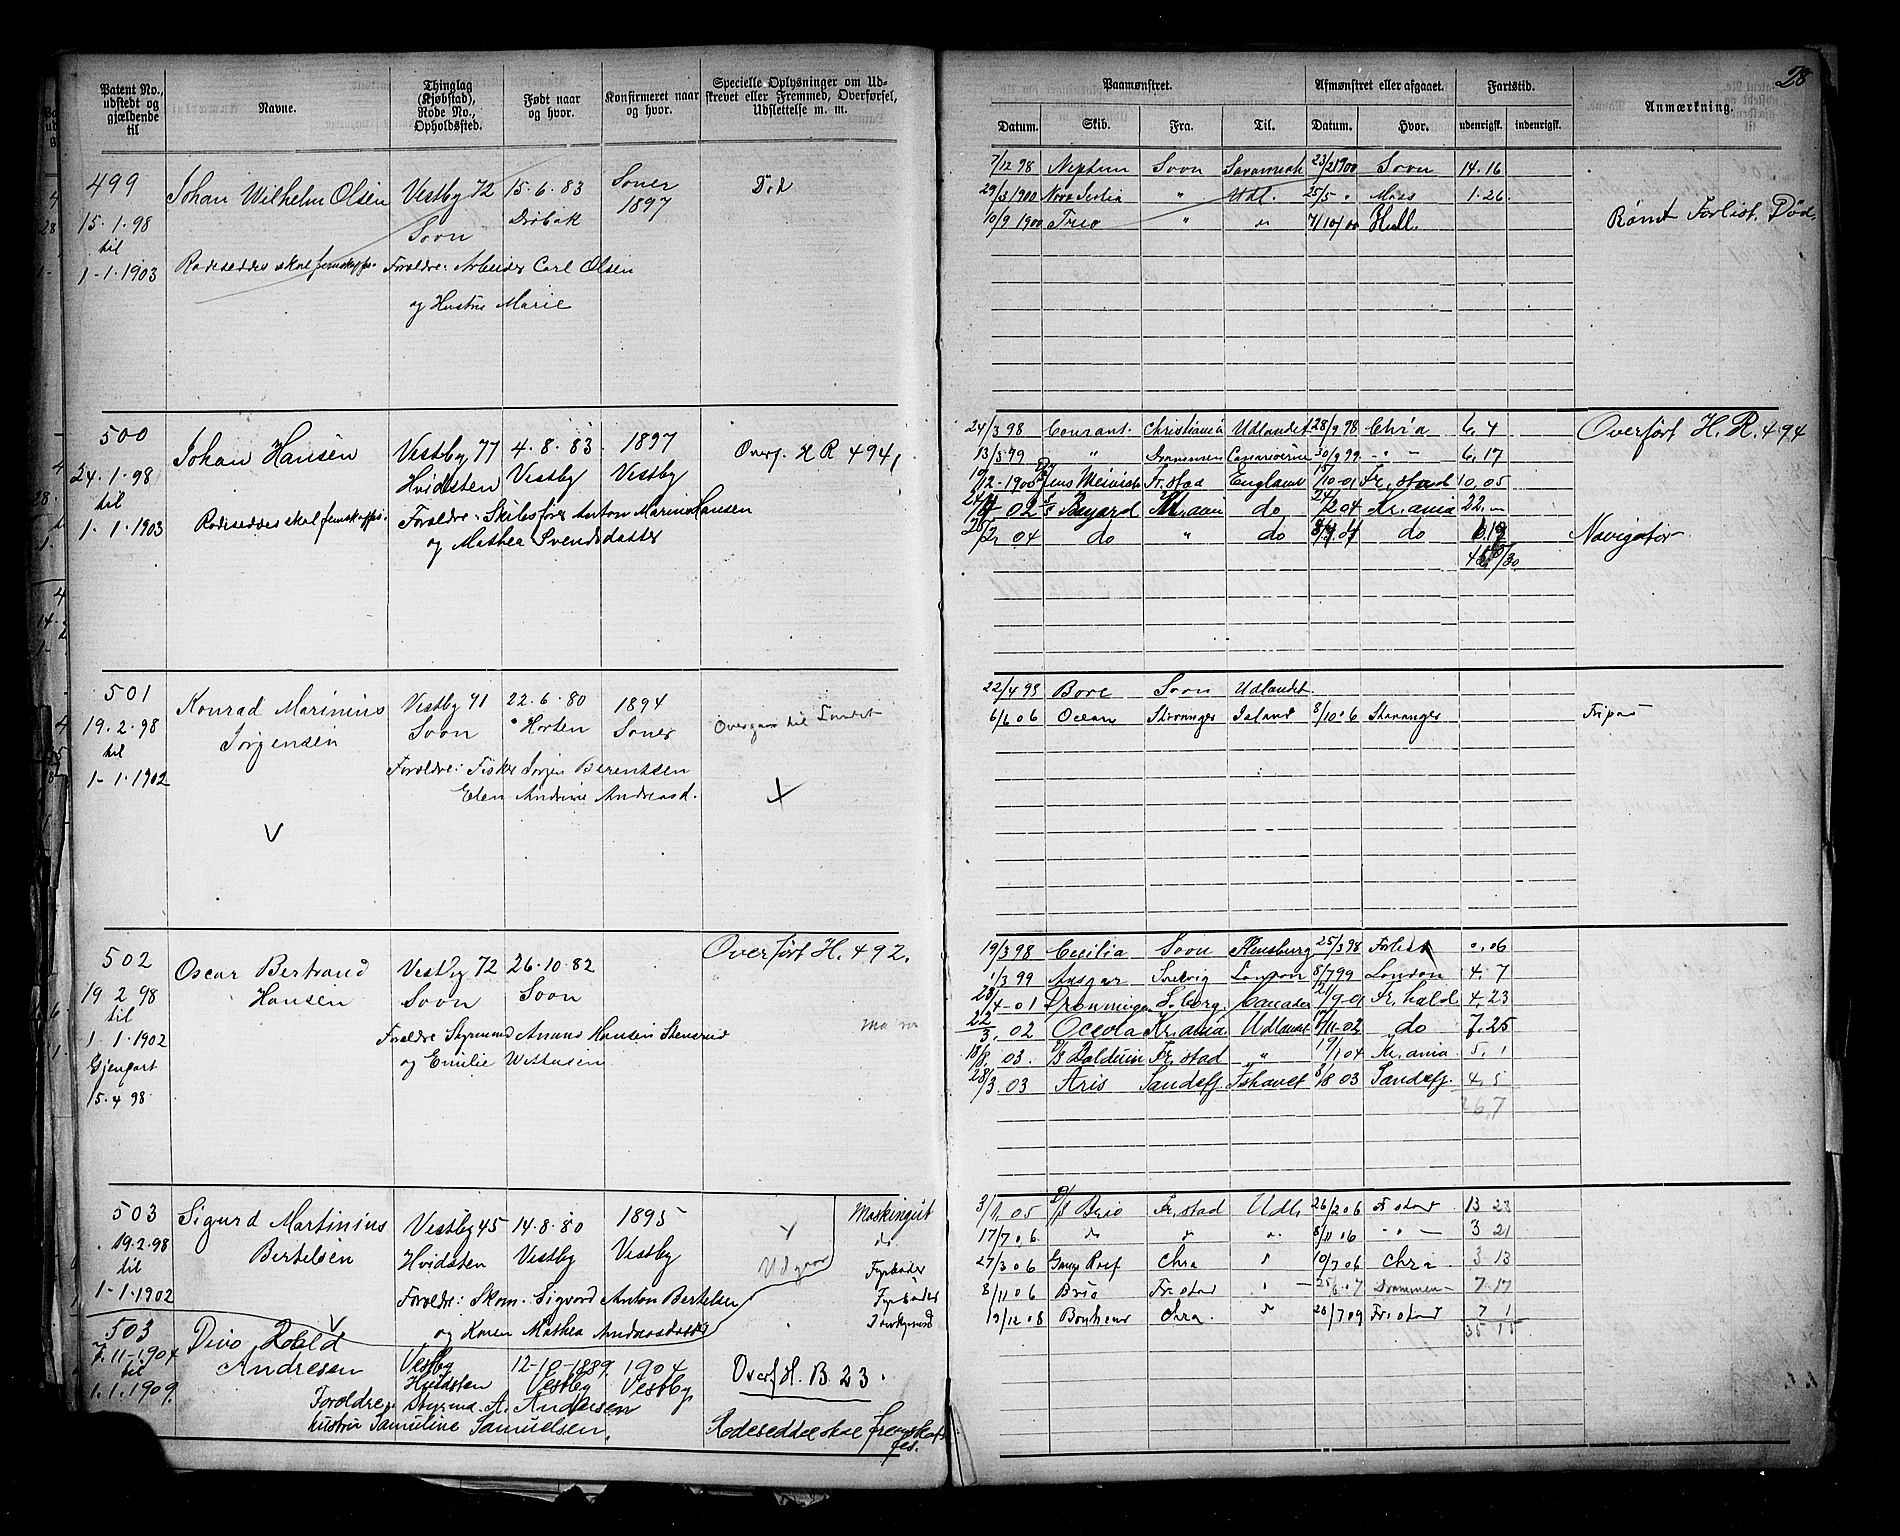 28
Patent No., udstedt og gjældende til
Navne.
Thinglag (Kjøbstad), Rode No., Opholdsted.
Født naar og hvor.
Konfirmeret naar og hvor.
Specielle Oplysninger om Udskrevet eller Fremmed, Overførsel, Udslettelse m. m.
Paamønstret.
Afmønstret eller afgaaet.
Fartstid.
Anmærkning.
Datum. Skib. Fra. Til. Datum. Hvor. udenrigsk. indenrigsk.
499 Johan Wilhelm Olsen Vestby 72 15.6.83 Soner Død
15.1.98 Soon Drøbak 1897
til
1-1.1903 Rodeseddel skal fremskaffes. Forældre: Arbeider Carl Olsen
og Hustru Marie
7/12 98 Neptun Soon 23/2 1900 Soon 14.16
29/3 1900 Nova Scotia " Udl. 25/5 " Moss 1.26
10/9 1900 Trio " do 7/10/00 Hull.
Rømt Forlist. Død.
500 Johan Hansen Vestby 77 4.8.83 1897 Overf. H R 494
24.1.98 Hvidsten Vestby Vestby
til
1.1.1903 Rodeseddel skal fremskaffes. Forældre: Skibsfører Anton Marinus Hansen
og Mathea Svendsdatter
24/3 98 Courant. Christiania Udlandet 28/9 98 Chr'a 6. 4 Overført H. R. 494
13/5 99 " 30/9 99 - " - 6. 17
Fr.stad England 10-01 Fr.stad 10.05
02 S/S Bayard Kr.aan do 2 04 Kr.ania 22. "
04 do " do do Navigatør
501 Konrad Marinius Jørgensen Vestby 71 22.6.80 1894
19.2.98 Soon Horten Soner Overgaar til Landet
til
1-1.1902 Forældre: Fisker Jørgen Berentsen
Elen Andrine Andreasd.
22/4 95 Bore Soon Udlandet
6/6 06 Ocean Stavanger Island 8/10 06 Stavanger Fripas
502 Oscar Bertrand Hansen Vestby 72 26.10.82 Overført H. 492.
19 2 98 Soon Soon
til
1.1.1902 Forældre Styrmand Hansen Stensrud
Gjenpart og Emilie
15.4 98
19/3 98 Cecilia Soon Flensburg 25/3 98 Forlist 0.06
1/3 99 Ansgar Svelvig London 8/7 99 London 4. 7
4-01 Dronningen S.borg 9-01 Fr.hald 4.23
22/3. 02 Oceola Kr.ania. Udlandet 11-02 do 7.25
18/8. 03 D/S Balduin Fr.stad " 19/1 04 Kr.ania. 5. 1
28/3. 03 Aris Sandefj. Ishavet 8/8 03 Sandefj. 4. 5
26,7
503 Sigurd Martinius Bertelsen Vestby 45 14.8.80 1895 Maskingut
19.2.98 Hvidsten Vestby Vestby Udgaar do
til Fyrbøder
1-1.1902 Forældre: Skom. Sigvard Anton Bertelsen Fyrbøder
og Karen Mathea Andreasdatter Donkeymand
3/1 05 D/S Brio Fr.stad Udl. 26/2 06 Fr stad 13 23
17/7 06 do " " 8/11 06 - " - 3 21
27/3 06 Gange Rolf Chra " 10/7 06 Chra 3 13
8/11 06 Brio Fr.stad " 25/6 07 Drammen 7.17
19/12 08 Bonheur Chra. " 28/7 09 Fr.stad 7 1
35 15
503 Andresen Vestby 12-10-1889 1904 Overf H. B. 23.
7.11-1904 Hvidsten Vestby Vestby
til
1.1.1909. Forældre: Styrmd. A. Andersen
hustru Samueline Samuelsen. Rodeseddel skal fremskaffes.